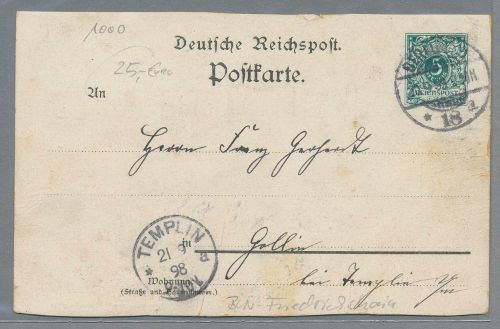 1000
25,- Euro
Deutsche Reichspost.
Postkarte.
An
5
REICHSPOST
* 18 a
Herrn Franz Gerhardt
in Gollin
TEMPLIN
21 9
98
* a
Wohnung
(Straße und Hausnummer.)
bei Templin